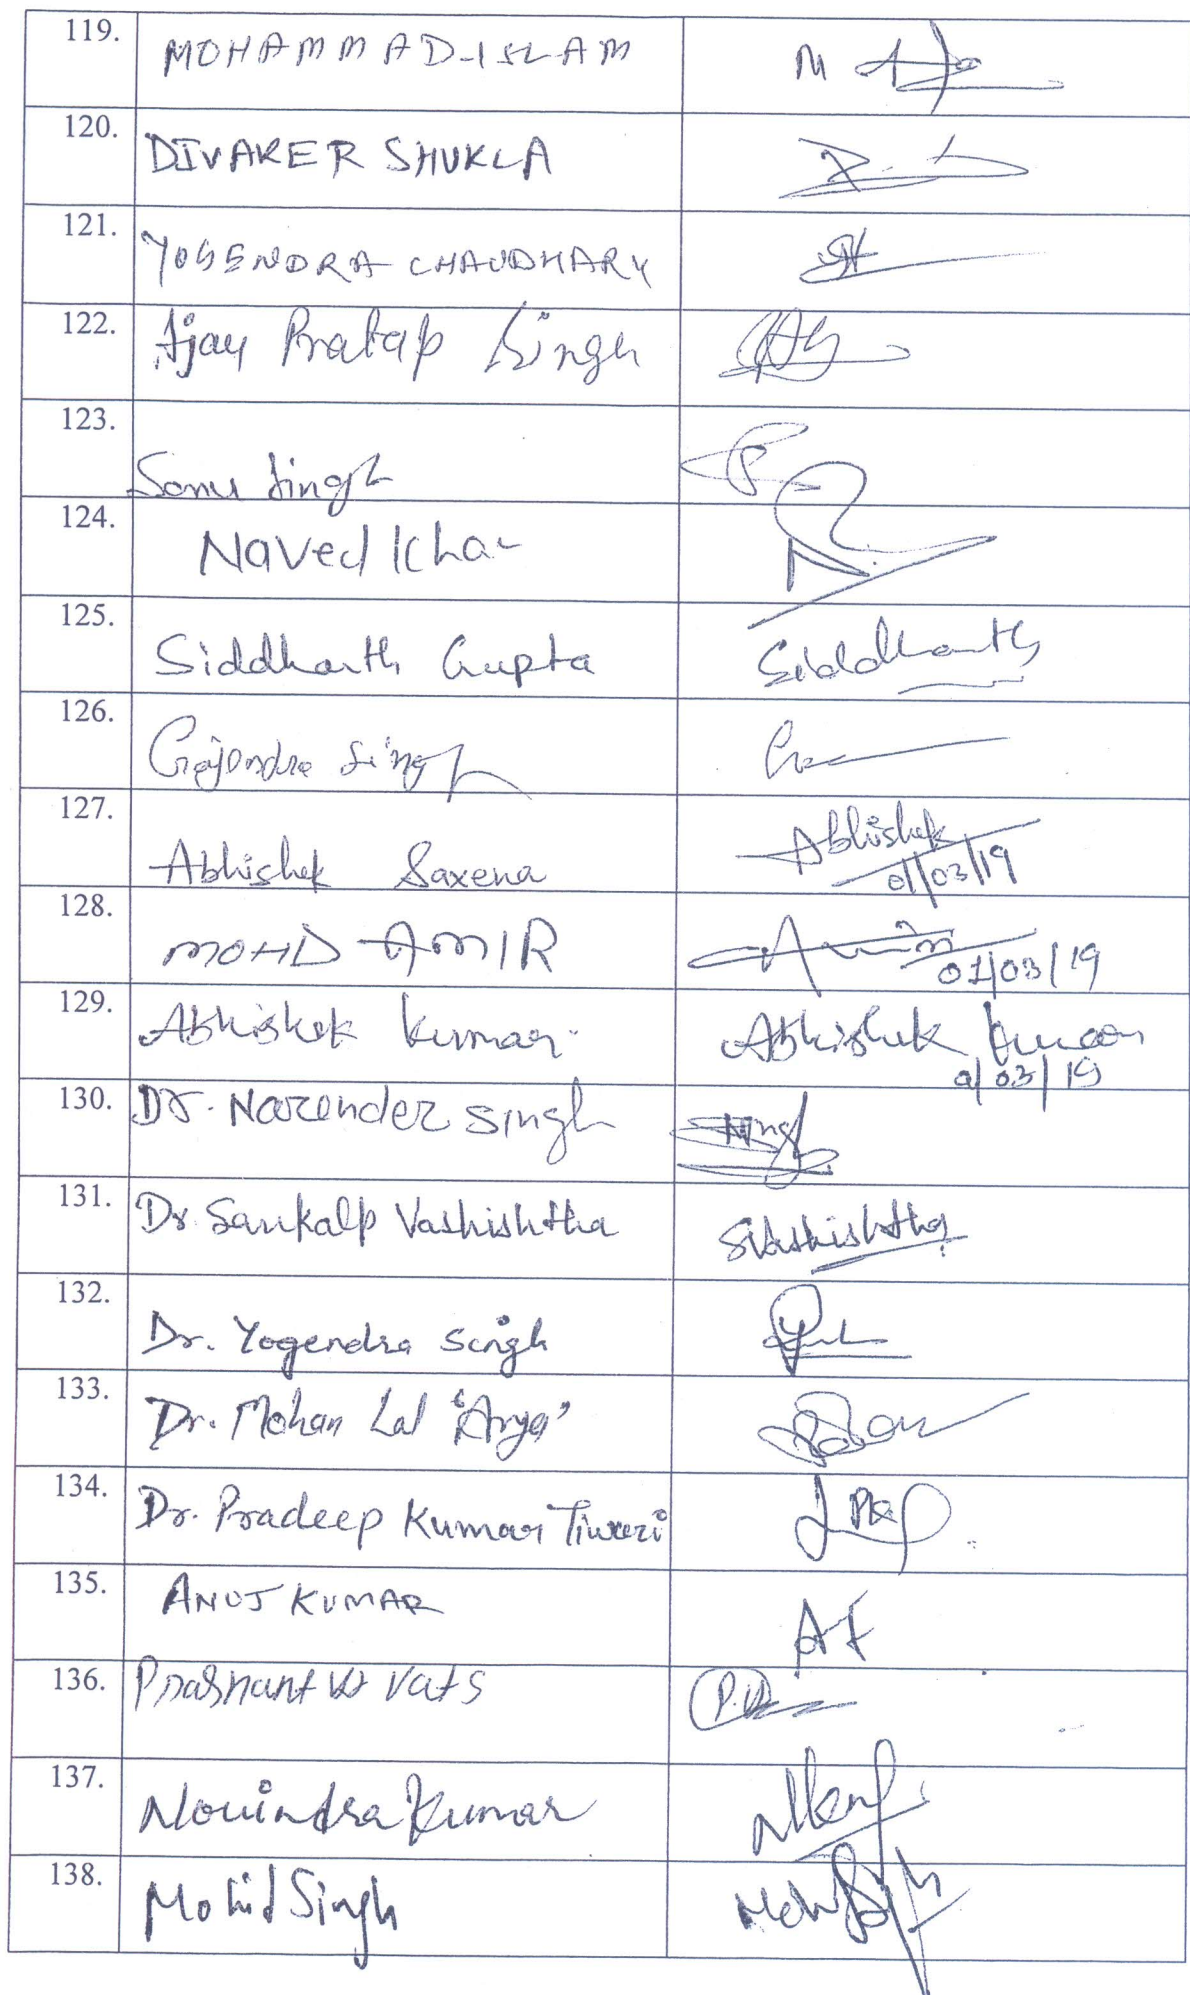 119. MOHAMMAD ISLAM M
120. DIVAKER SHUKLA
121. YOGENDRA CHAUDHARY
122. Ajay Pratap Singh
123. Sonu Singh
124. Naved Khan
125. Siddharth Gupta Siddharth
126. Gajendra Singh
127. Abhishek Saxena Abhishek
01/03/19
128. MOHD AMIR Amir
01/03/19
129. Abhishek Kumar Abhishek Kumar
01/03/19
130. Dr. Narender Singh Singh
131. Dr. Sankalp Vashishtha SVashishtha
132. Dr. Yogendra Singh
133. Dr. Mohan Lal "Arya"
134. Dr. Pradeep Kumar Tiwari
135. ANUJ KUMAR AK
136. Prashant Kr Vats
137. Kumar
138. Mohid Singh